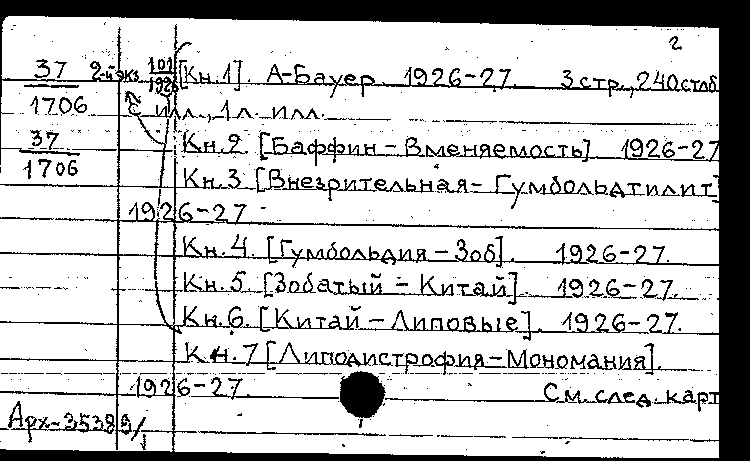 2
37 2-й экз. 101 [Кн.1]. А-Бауер. 1926-27. 3 стр., 240 стлб
1706 1926 с илл., 1 л. илл.
37 Кн.2. [Баффин - Вменяемость] 1926-27
1706 Кн.3 [Внезрительная - Гумбольдтилит]
1926-27
Кн.4. [Гумбольдия - Зоб]. 1926-27.
Кн.5. [Зобатый - Китай]. 1926-27.
Кн.6. [Китай - Липовые]. 1926-27.
Кн.7 [Липодистрофия - Мономания].
1926-27. См. след. карт
Арх-35389/1